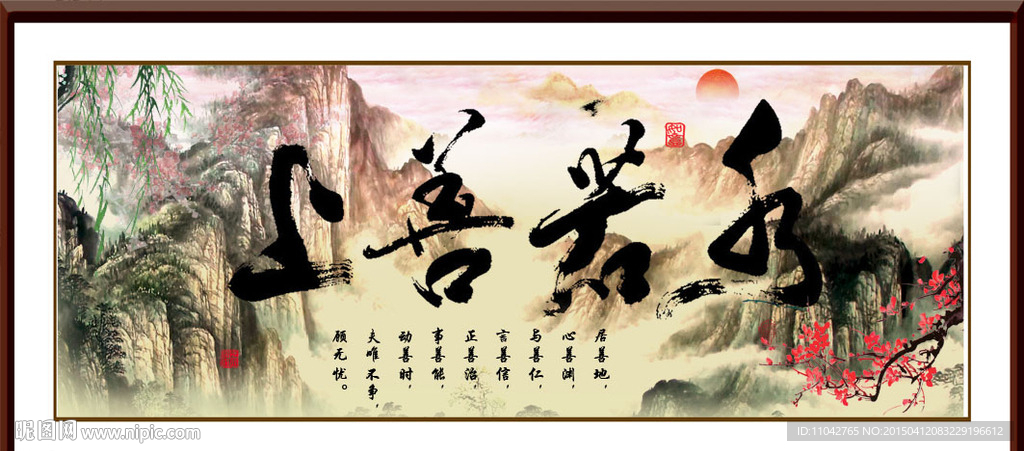 上善若水
如意
居善地，
心善渊，
与善仁，
言善信，
正善治，
事善能，
动善时，
夫唯不争，
顾无忧。
昵图网 www.nipic.com
ID:11042765 NO:20150412083229196612